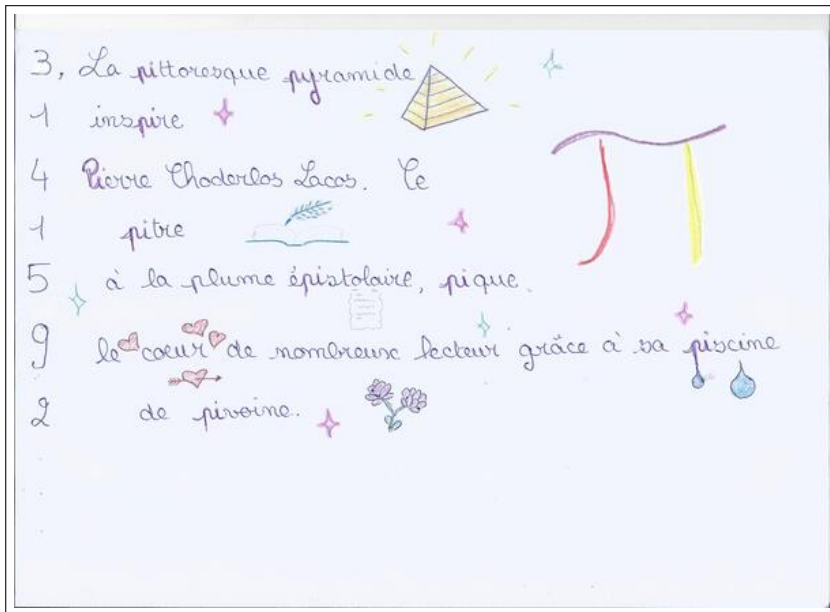 3, La pittoresque pyramide
1 inspire
4 Pierre Choderlos Lacos. Ce
1 pitre
5 à la plume épistolaire, pique.
9 le coeur de nombreux lecteur grâce à sa piscine
2 de pivoine.
.
.
.
π